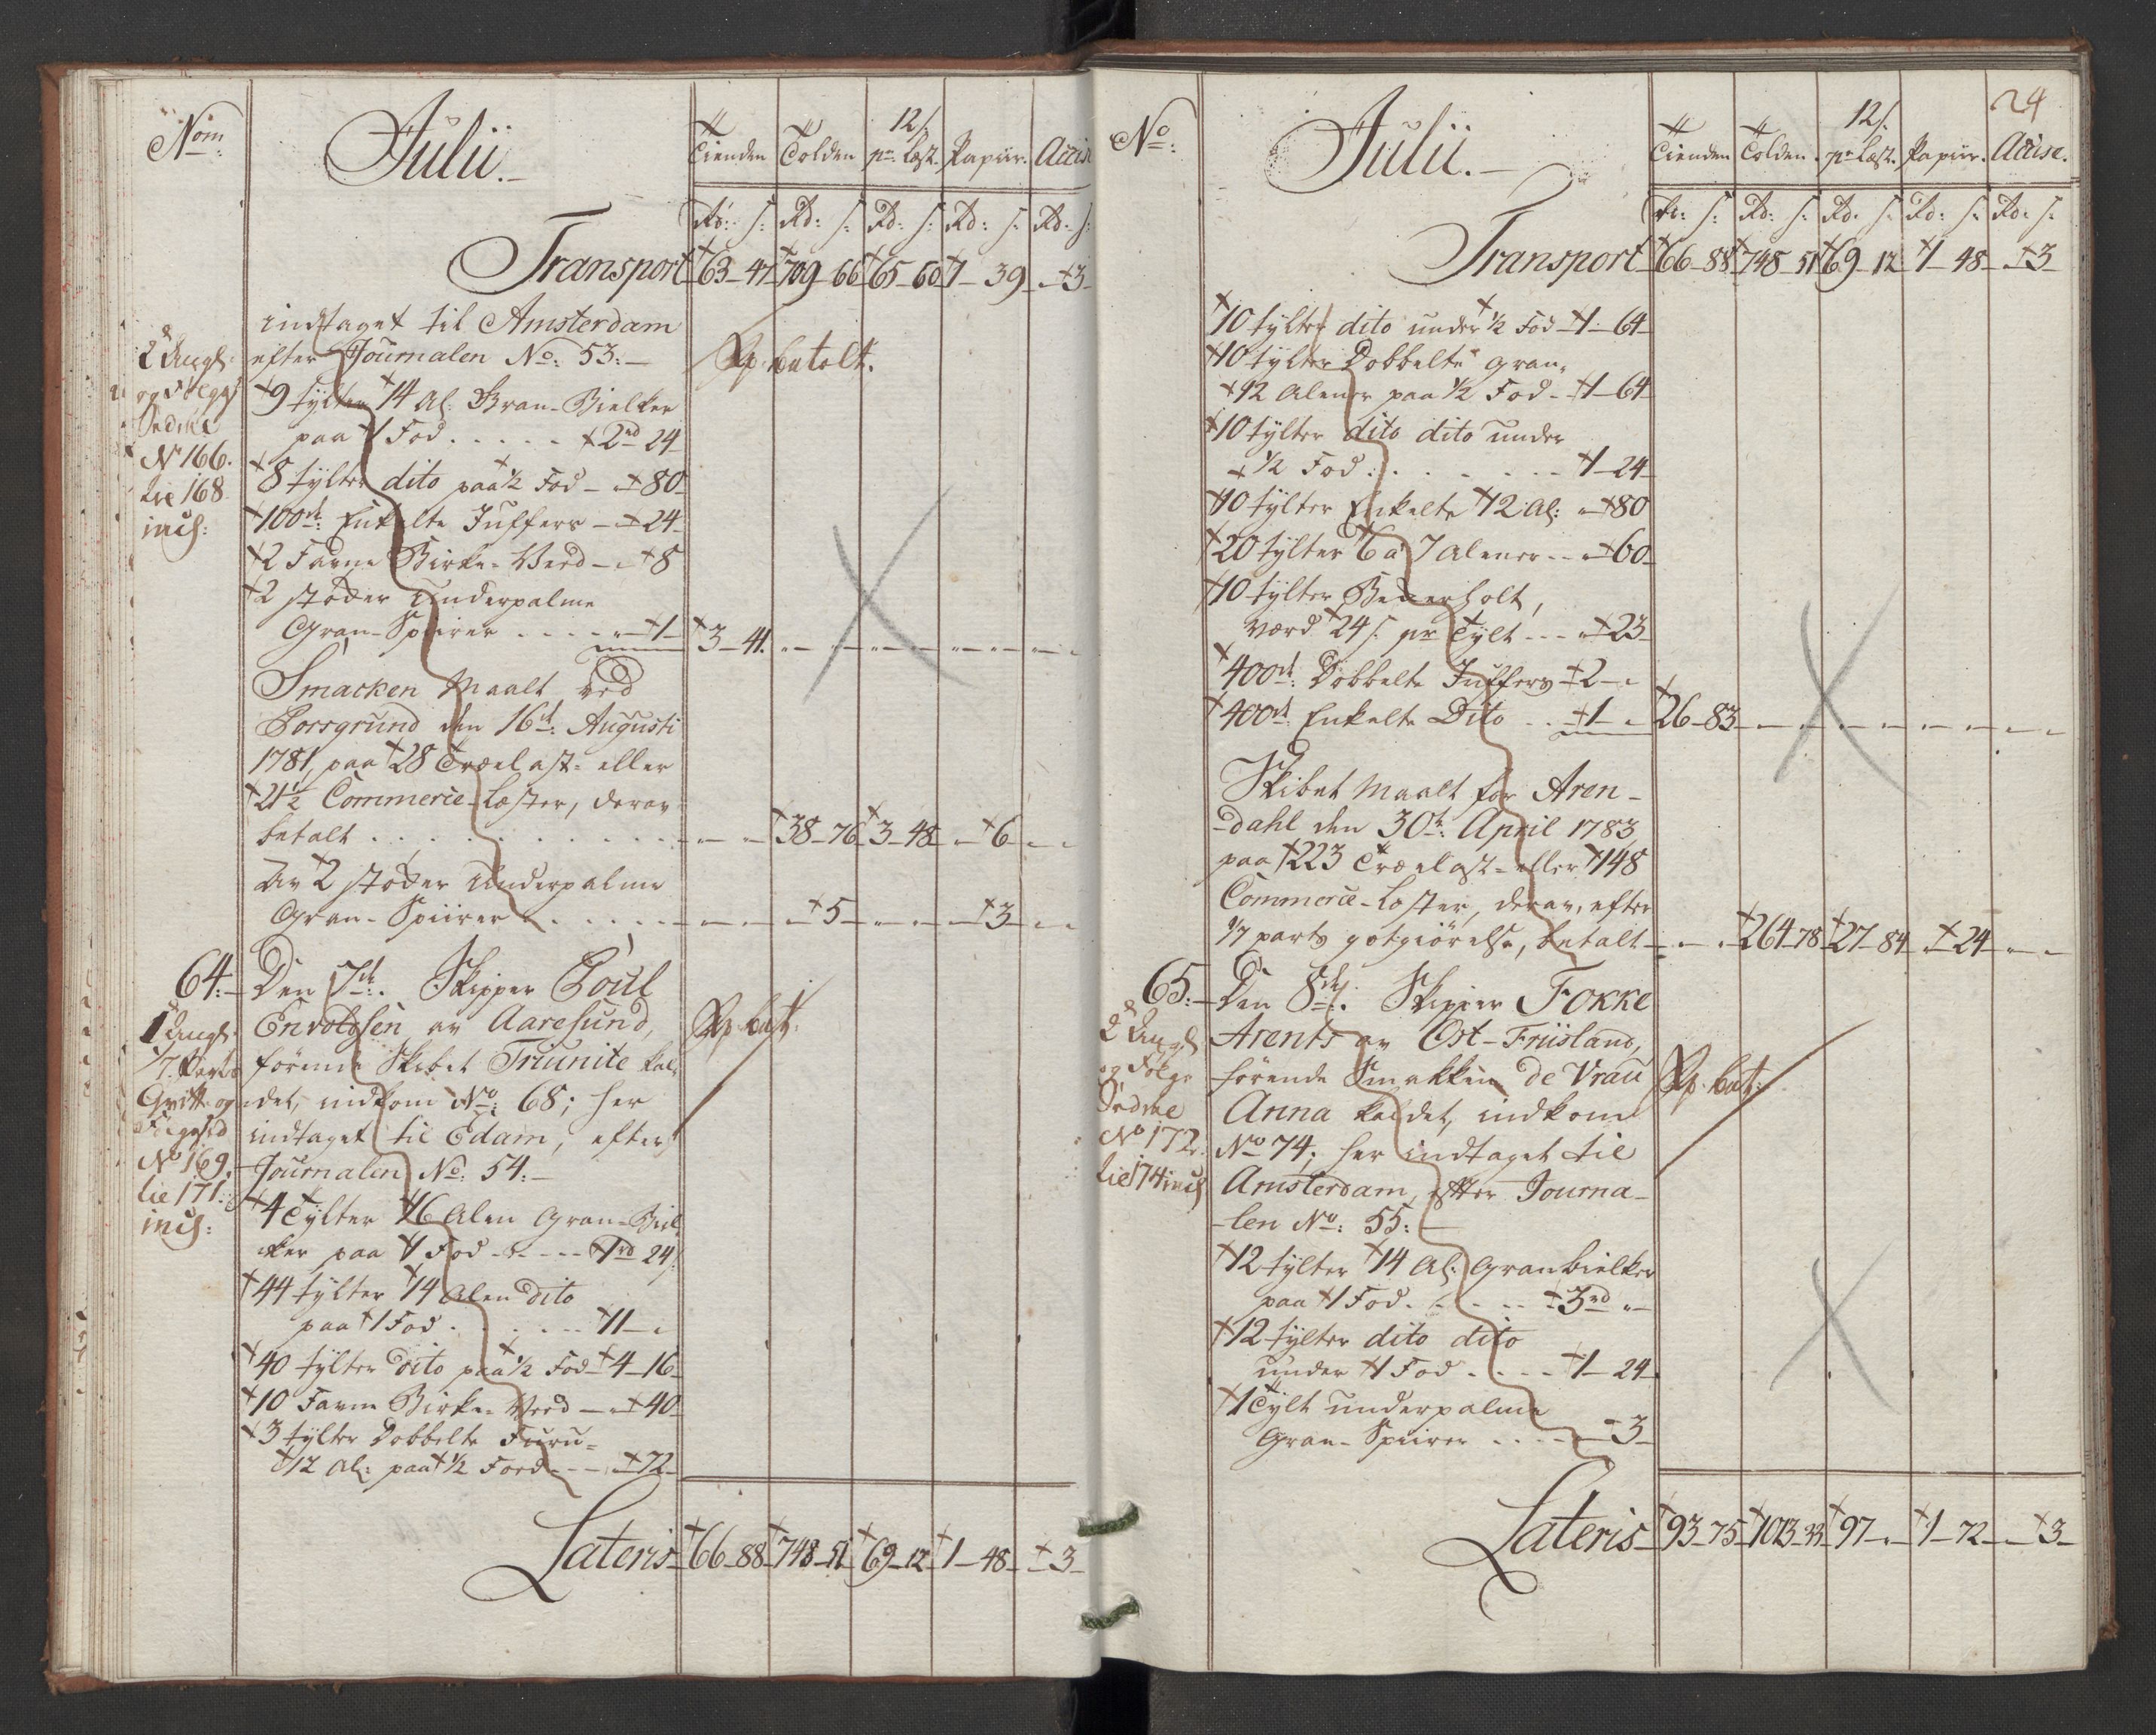 Nom:
Julii.
Tienden Tolden 12/ pr. Læst. Papiir. Accise
Rd: s: Rd: s: Rd: s: Rd: s: Rd: s:
Transport 63-47 709-66 65-60 1-39 - 3-
indtaget til Amsterdam
efter Journalen No: 53:-
betalt.
No 166.
lie 168
incl:
9 tylter 14 Al: Gran-Bielker
paa 1 Fod . . . . . 2rd 24
8 tylter dito paa 1/2 Fod - - 80-
100rd: Enkelte Juffers - - 24-
2 Favne Birke-Veed - - 8
2 støder Underpalme
Gran-Spiirer . . . . - 1- 3-41.
Smacken Maalt ved
Porsgrund den 16de: Augusti
1781, paa 28 Trælast- eller
21 1/2 Commerce-Læster, derav
betalt . . . . . . . . 38-76 3-48 - 6 -
Av 2 støder Underpalme
Gran-Spiirer . . . . . . - 5 - - 3 -
64:- Den 7de: Skipper Poul
Envoldsen av Aaresund,
førende Skibet Triunite kal-
det, indkom No: 68; her
indtaget til Edam, efter
Journalen No: 54:-
No 169.
lie 171:
incl:
4 Tylter 16 Alen Gran-Biel
ker paa 1 Fod - - - - - 1rd 24s:
44 tylter 14 Alen dito
paa 1 Fod . . . . . 11 -
40 tylter dito paa 1/2 Fod - 4-16-
10 Favne Birke-Veed - - 40-
3 tylter Dobbelte Furu-
12 Al: paa 1/2 Foed - - - 72-
Lateris 66-88 748-51 69-12 1-48 - 3-
No:
Julii.-
24
Tienden Tolden 12/. pr Læst. Papiir. Accise.
Rd: s: Rd: s: Rd. s: Rd: s: Rd: s:
Transport 66-88 748-51 69-12 1-48 - 3-
10 tylter dito under 1/2 Fod - 1-64-
10 tylter Dobbelte Gran-
12 Alener paa 1/2 Fod - 1-64
10 tylter dito dito under
1/2 Fod . . . . . . 1-24
10 tylter Enkelte 12 Al: - 80
20 tylter 6 a 7 Alener - - 60-
10 tylter Bederholt,
værd 24 s. pr Tylt - - - 23-
400rd: Dobbelte Juffers - 2 -
400rd: Enkelte Dito . . . 1 - 26-83
Skibet Maalt for Aren-
-dahl den 30te: April 1783
paa 223 Trælast- eller 148
Commerce-Læster, derav, efter
1/7 parts gotgiørelse, betalt 264-78 27-84 - 24 -
65:- Den 8de: Skipper Fokke
Arents av Ost-Friisland,
førende Smakken de Vrau
Anna kaldet, indkom
No 74; her indtaget til
Amsterdam, efter Journa-
-len No: 55:-
No 172.
lie 174 incl
12 tylter 14 Al: Granbielker
paa 1 Fod . . . . . 3rd -
12 tylter dito dito
under 1 Fod . . . . 1-24
1 Tylt underpalme
Gran-Spiirer . . . . - 3-
Lateris 93-75 1013-33 97 - 1-72 - 3-